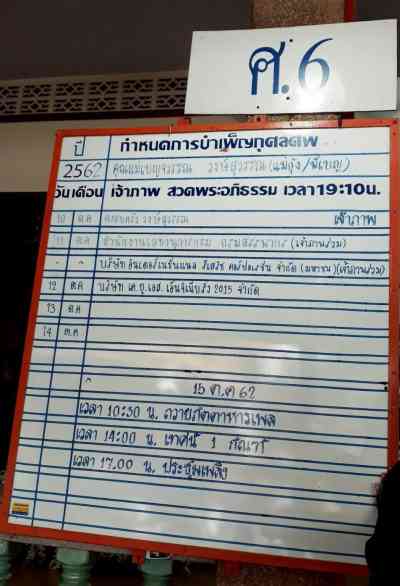 ศ.6
ปี กำหนดการบำเพ็ญกุศลศพ
2562 คุณแม่เบญจวรรณ วงษ์สุวรรณ (แม่กุ้ง/พี่เบญ)
วัน เดือน เจ้าภาพ สวดพระอภิธรรม เวลา 19:10น.
10 ต.ค ครอบครัว วงษ์สุวรรณ เจ้าภาพ
11 ต.ค สำนักงานเลขานุการกรม กรมสรรพากร (เจ้าภาพร่วม)
" " บริษัท อินเตอร์เนชั่นแนล รีเสริช คอร์ปอเรชั่น จำกัด (มหาชน) (เจ้าภาพร่วม)
12 ต.ค บริษัท เค.ยู.เอส. เอ็นจิเนียริ่ง 2015 จำกัด
13 ต.ค
14 ต.ค
15 ต.ค 62
เวลา 10:30 น. ถวายภัตตาหารเพล
เวลา 14:00 น. เทศน์ 1 กัณฑ์
เวลา 17.00 น. ประชุมเพลิง